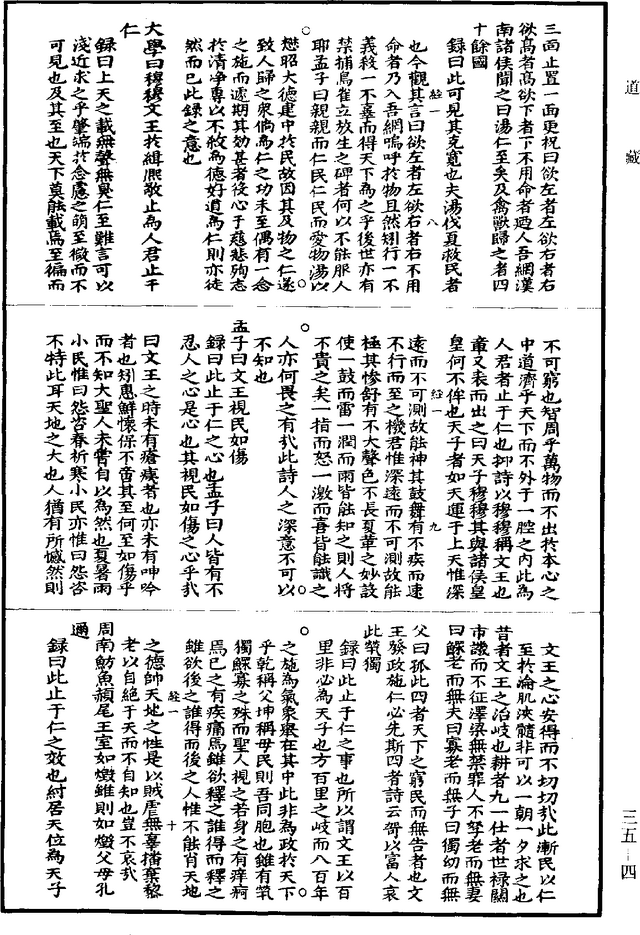 道藏
三面止置一面更祝曰欲左者左欲右者右
欲高者高欲下者下不用命者廼入吾網漢
南諸侯聞之曰湯仁至矣及禽獸歸之者四
十餘國
錄曰此可見其克寬也夫湯伐夏救民者
也今觀其言曰欲左者左欲右者右不用
命者乃入吾網嗚呼於物且然矧行一不
義殺一不辜而得天下為之乎後世亦有
禁捕鳥雀立放生之碑者何以不能服人
耶孟子曰親親而仁民仁民而愛物湯以
懋昭大德建中於民故因其及物之仁遂
致人歸之衆倘為仁之功未至偶有一念
之施而遽期其効甚者役心于慈悲殉志
於清淨專以不殺為德好道為仁則亦徒
然而已此錄之意也
大學曰穆穆文王於緝熙敬止為人君止于
仁
錄曰上天之載無聲無臭仁至難言可以
淺近求之乎肇端於念慮之萌至微而不
可見也及其至也天下莫能載焉至徧而
經一
八
不可窮也智周乎萬物而不出於本心之
中道濟乎天下而不外于一腔之內此為
人君者止于仁也抑詩以穆穆稱文王也
章又表而出之曰天子穆穆其與諸侯皇
皇何不侔也天子者如天運于上天惟深
遠而不可測故能神其鼓舞有不疾而速
不行而至之機君惟深遠而不可測故能
極其慘舒有不大聲色不長夏革之妙設
使一鼓而雷一潤而雨皆能知之則人將
不貴之矣一指而怒一激而喜皆能識之
人亦何畏之有哉此詩人之深意不可以
不知也
孟子曰文王視民如傷
錄曰此止于仁之心也孟子曰人皆有不
忍人之心是心也其視民如傷之心乎哉
曰文王之時未有瘡痍者也亦未有呻吟
者也矧惠鮮懷保不啻其至何至如傷乎
而不知大聖人未嘗自以為然也夏暑雨
小民惟曰怨咨春祈寒小民亦惟曰怨咨
不特此耳天地之大也人猶有所憾然則
經一
九
文王之心安得而不切切哉此漸民以仁
至於淪肌浹髓非可以一朝一夕求之也
昔者文王之治岐也耕者九一仕者世祿關
市譏而不征澤梁無禁罪人不孥老而無妻
曰鰥老而無夫曰寡老而無子曰獨幼而無
父曰孤此四者天下之窮民而無告者也文
王發政施仁必先斯四者詩云哿以富人哀
此煢獨
錄曰此止于仁之事也所以謂文王以百
里非必為天子也方百里之岐而八百年
之施為氣象槩在其中此非為政於天下
乎乾稱父坤稱母民則吾同胞也雖有煢
獨鰥寡之殊而聖人視之若身之有痒痾
焉已之有疾痛焉雖欲釋之誰得而釋之
雖欲後之誰得而後之人惟不能肖天地
之德帥天地之性是以賊虐無辜播棄黎
老以自絕于天而不自知也豈不哀哉
周南魴魚頳尾王室如燬雖則如燬父母孔
邇
錄曰此止于仁之效也紂居天位為天子
經一
十
三五-四